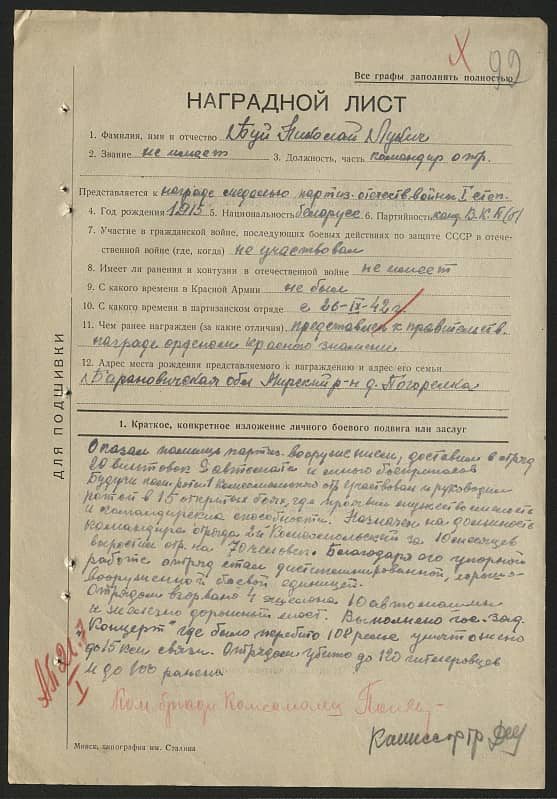 X 92
Все графы заполнять полностью
НАГРАДНОЙ ЛИСТ
1. Фамилия, имя и отчество Буй Николай Лукич
2. Звание не имеет 3. Должность, часть командир отр.
Представляется к награде медалью партиз. отечеств. войны I степ.
4. Год рождения 1915 5. Национальность беларусс 6. Партийность канд. В.К.П(б)
7. Участие в гражданской войне, последующих боевых действиях по защите СССР в отече-
ственной войне (где, когда) не участвовал
8. Имеет ли ранения и контузии в отечественной войне не имеет
9. С какого времени в Красной Армии не был
10. С какого времени в партизанском отряде с 26-IX-42 г.
11. Чем ранее награжден (за какие отличия) представлен к правительств.
награде орденом красного знамени
12. Адрес места рождения представляемого к награждению и адрес его семьи
Барановичская обл Мирский р-н д. Погорелка
ДЛЯ ПОДШИВКИ
1. Краткое, конкретное изложение личного боевого подвига или заслуг
Оказал помощь партиз. вооружением, доставил в отряд
20 винтовок 3 автомата и много боеприпасов
Будучи ком. роты Комсомольского отр. участвовал и руководил
ротой в 15 открытых боях, где проявил мужество смелость
и командирские способности. Назначен на должность
командира отряда 2й Комсомольский за 10 месяцев
вырастил отр. на 70 человек. Благодаря его упорной
работе отряд стал дисциплинированной, хорошо-
вооруженной боевой единицей.
Отрядом взорвано 4 эшелона 10 автомашин
и железно дорожный мост. Выполнено гос. зад.
"Концерт" где было перебито 108 рельс уничтожено
до 15 км связи. Отрядом убито до 120 гитлеровцев
и до 100 ранено.
Ком. бригады Комсомолец
Комиссар
Минск, типография им. Сталина